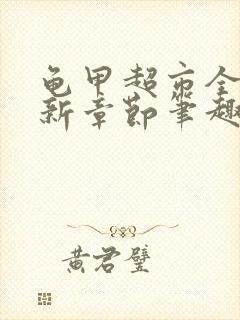 龟甲超市全
新章节笔趣
黄君璧